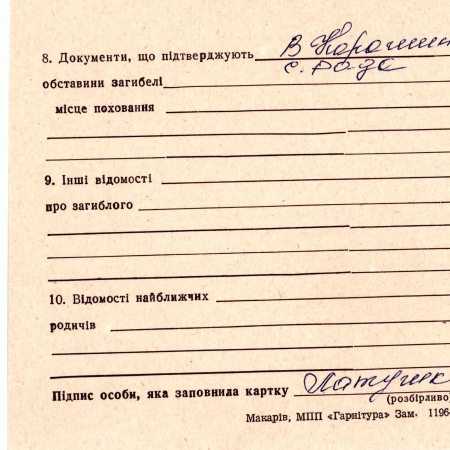 8. Документи, що підтверджують
с. Рада
обставини загибелі
місце поховання
9. Інші відомості
про загиблого
10. Відомості найближчих
родичів
Підпис особи, яка заповнила картку
(розбірливо)
Макарів, МПП «Гарнітура» Зам. 1196